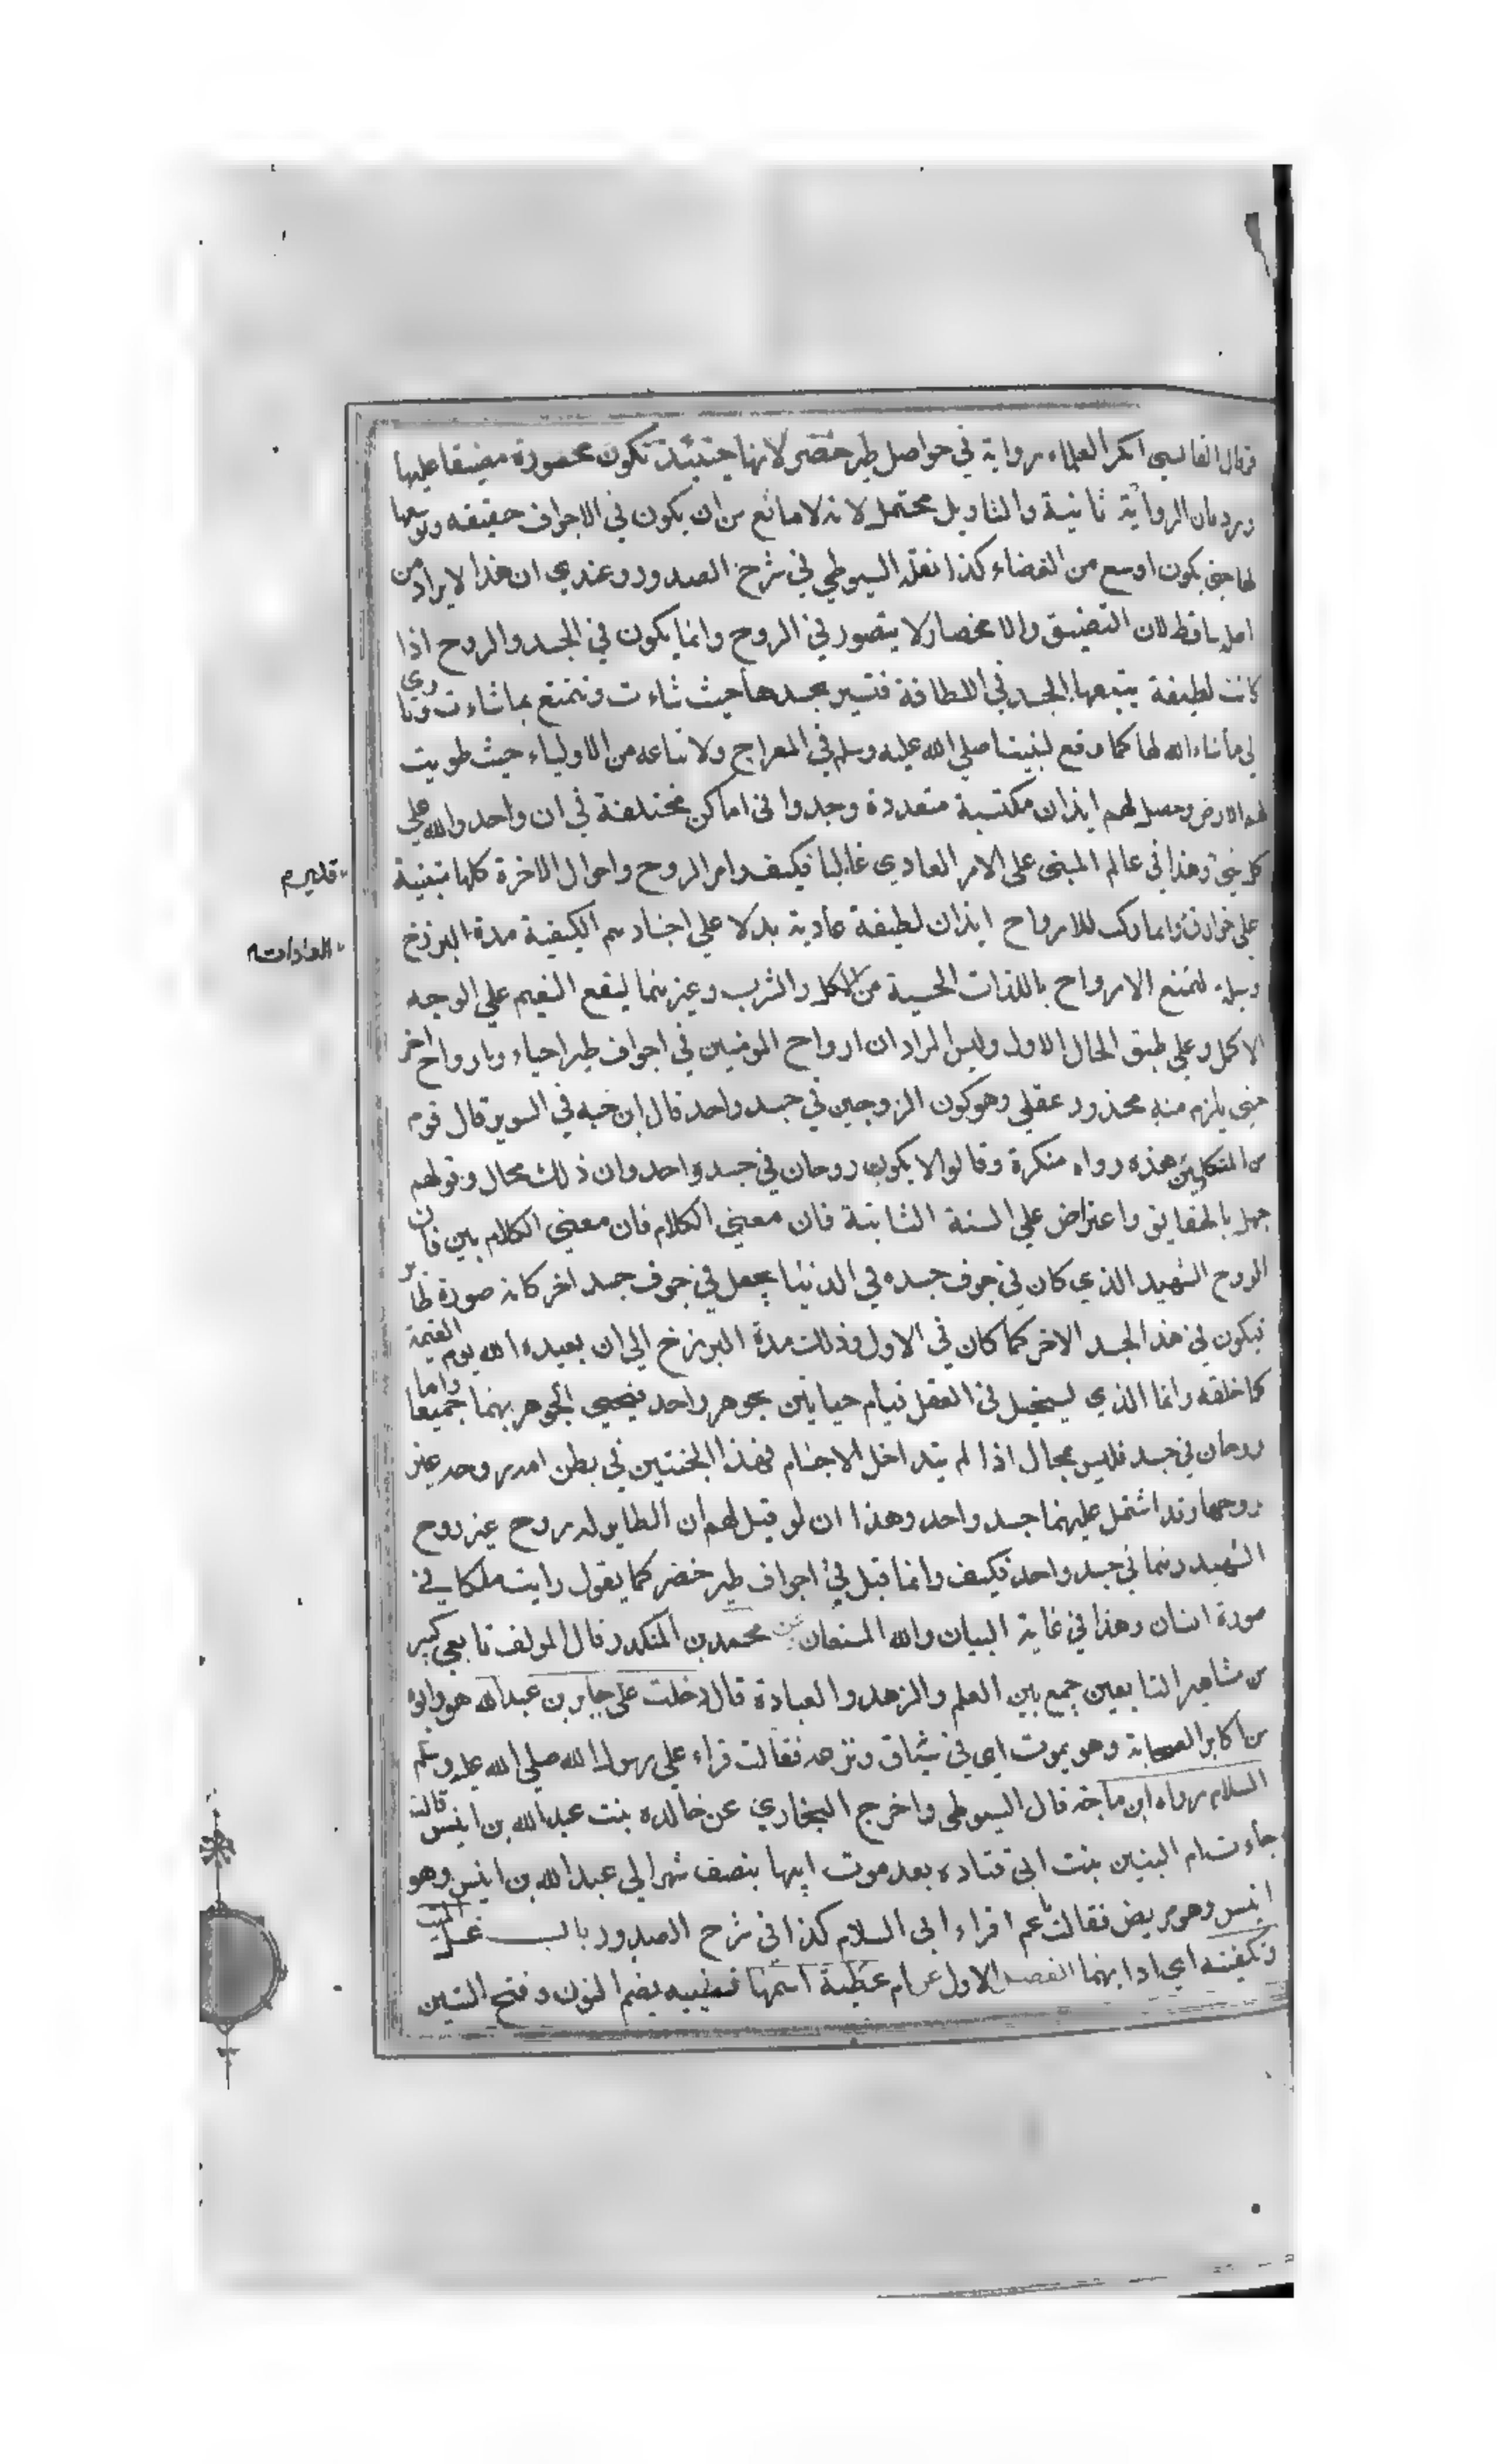 وقال القابسي انكر العلماء رواية في حواصل طير خضر لانها حينئذ تكون محصورة مضيقا عليها
ورد بان الرواية ثانية والتاويل محتمل لانه لا مانع من ان يكون في الاجواف حقيقه وتوسعها
لها حتي يكون اوسع من الفضاء كذا نقله السيوطي في شرح الصدور وعندي ان هذا لايراد من
اصله ساقط لان التضيق والانحصار لا يتصور في الروح وانما يكون في الجسد والروح اذا
كانت لطيفة يتبعها الجسد في اللطافة فتسير بجسدها حيث شاءت وتتمتع بما شاءت وتاوي
لي ماشاء الله لها كما وقع لنبينا صلي الله عليه وسلم في المعراج ولاتباعه من الاولياء حيث طويت
لهم الارض وحصل لهم ابدان مكتسبة متعددة وجدوا في اماكن مختلفة في ان واحد والله علي
كل شي وهذا في عالم المبني علي الامر العادي غالبا فكيف وامر الروح واحوال الاخرة كلها مبنية
قدير م
علي خوارق وانما ركب للارواح ابدان لطيفة عادية بدلا علي اجسادهم الكيفية مدة البرزخ
العادات م
وسيلة لتمتع الارواح باللذات الحسية من الاكل والشرب وغيرهما ليقع النعيم علي الوجه
الاكمل وعلي طبق الحال الاول وليس المراد ان ارواح المومنين في اجواف طير احياء وبارواح اخر
حتي يلزم منه محذور عقلي وهو كون الروحين في جسد واحد قال ابن دحيه في السوير قال قوم
من المتكلمين هذه رواه منكرة وقالوا لا يكون روحان في جسد واحد وان ذلك محال وقولهم
جهل بالحقايق واعتراض علي السنة الثابتة فان معني الكلام فان معني الكلام بين فان
الروح الشهيد الذي كان في جوف جسده في الدنيا يجعل في جوف جسد اخر كانه صورة طاير
فيكون في هذا الجسد الاخر كما كان في الاول وذلك مدة البرزخ الي ان يعيده الله يوم القيمة
كما خلقه وانما الذي يستحيل في العقل قيام حياتين بجوهر واحد فيحيي الجوهر بهما جميعا واما
روحان في جسد فليس بمحال اذا لم يتداخل الاجسام فهذا الجنين في بطن امه روحه غير
روحها وقد اشتمل عليهما جسد واحد وهذا ان لو قيل لهم ان الطاير له روح غير روح
الشهيد وهما في جسد واحد فكيف وانما قيل في اجواف طير خضر كما يقول رايت ملكا في
صورة انسان وهذا في غاية البيان والله المستعان عن محمد بن المنكدر قال المولف تابعي كبير
من مشاهير التابعين جمع بين العلم والزهد والعبادة قال دخلت علي جابر بن عبد الله هو وابوه
من اكابر الصحابة وهو يموت اي في سياق ونزعه فقالت قراء علي رسول الله صلي الله عليه وسلم
السلام رواه ابن ماجه قال السيوطي واخرج البخاري عن خالده بنت عبد الله بن انيس قالت
جاءت ام البنين بنت ابي قتاده بعد موت ابيها بنصف شهر الي عبد الله بن انيس وهو
انيس وهو مريض فقالت يا عم اقراء ابي السلام كذا في شرح الصدور باب غسل الميت
وتكفينه اي ادابهما الفصل الاول عن ام عطية اسمها نسيبه بضم النون وفتح السين